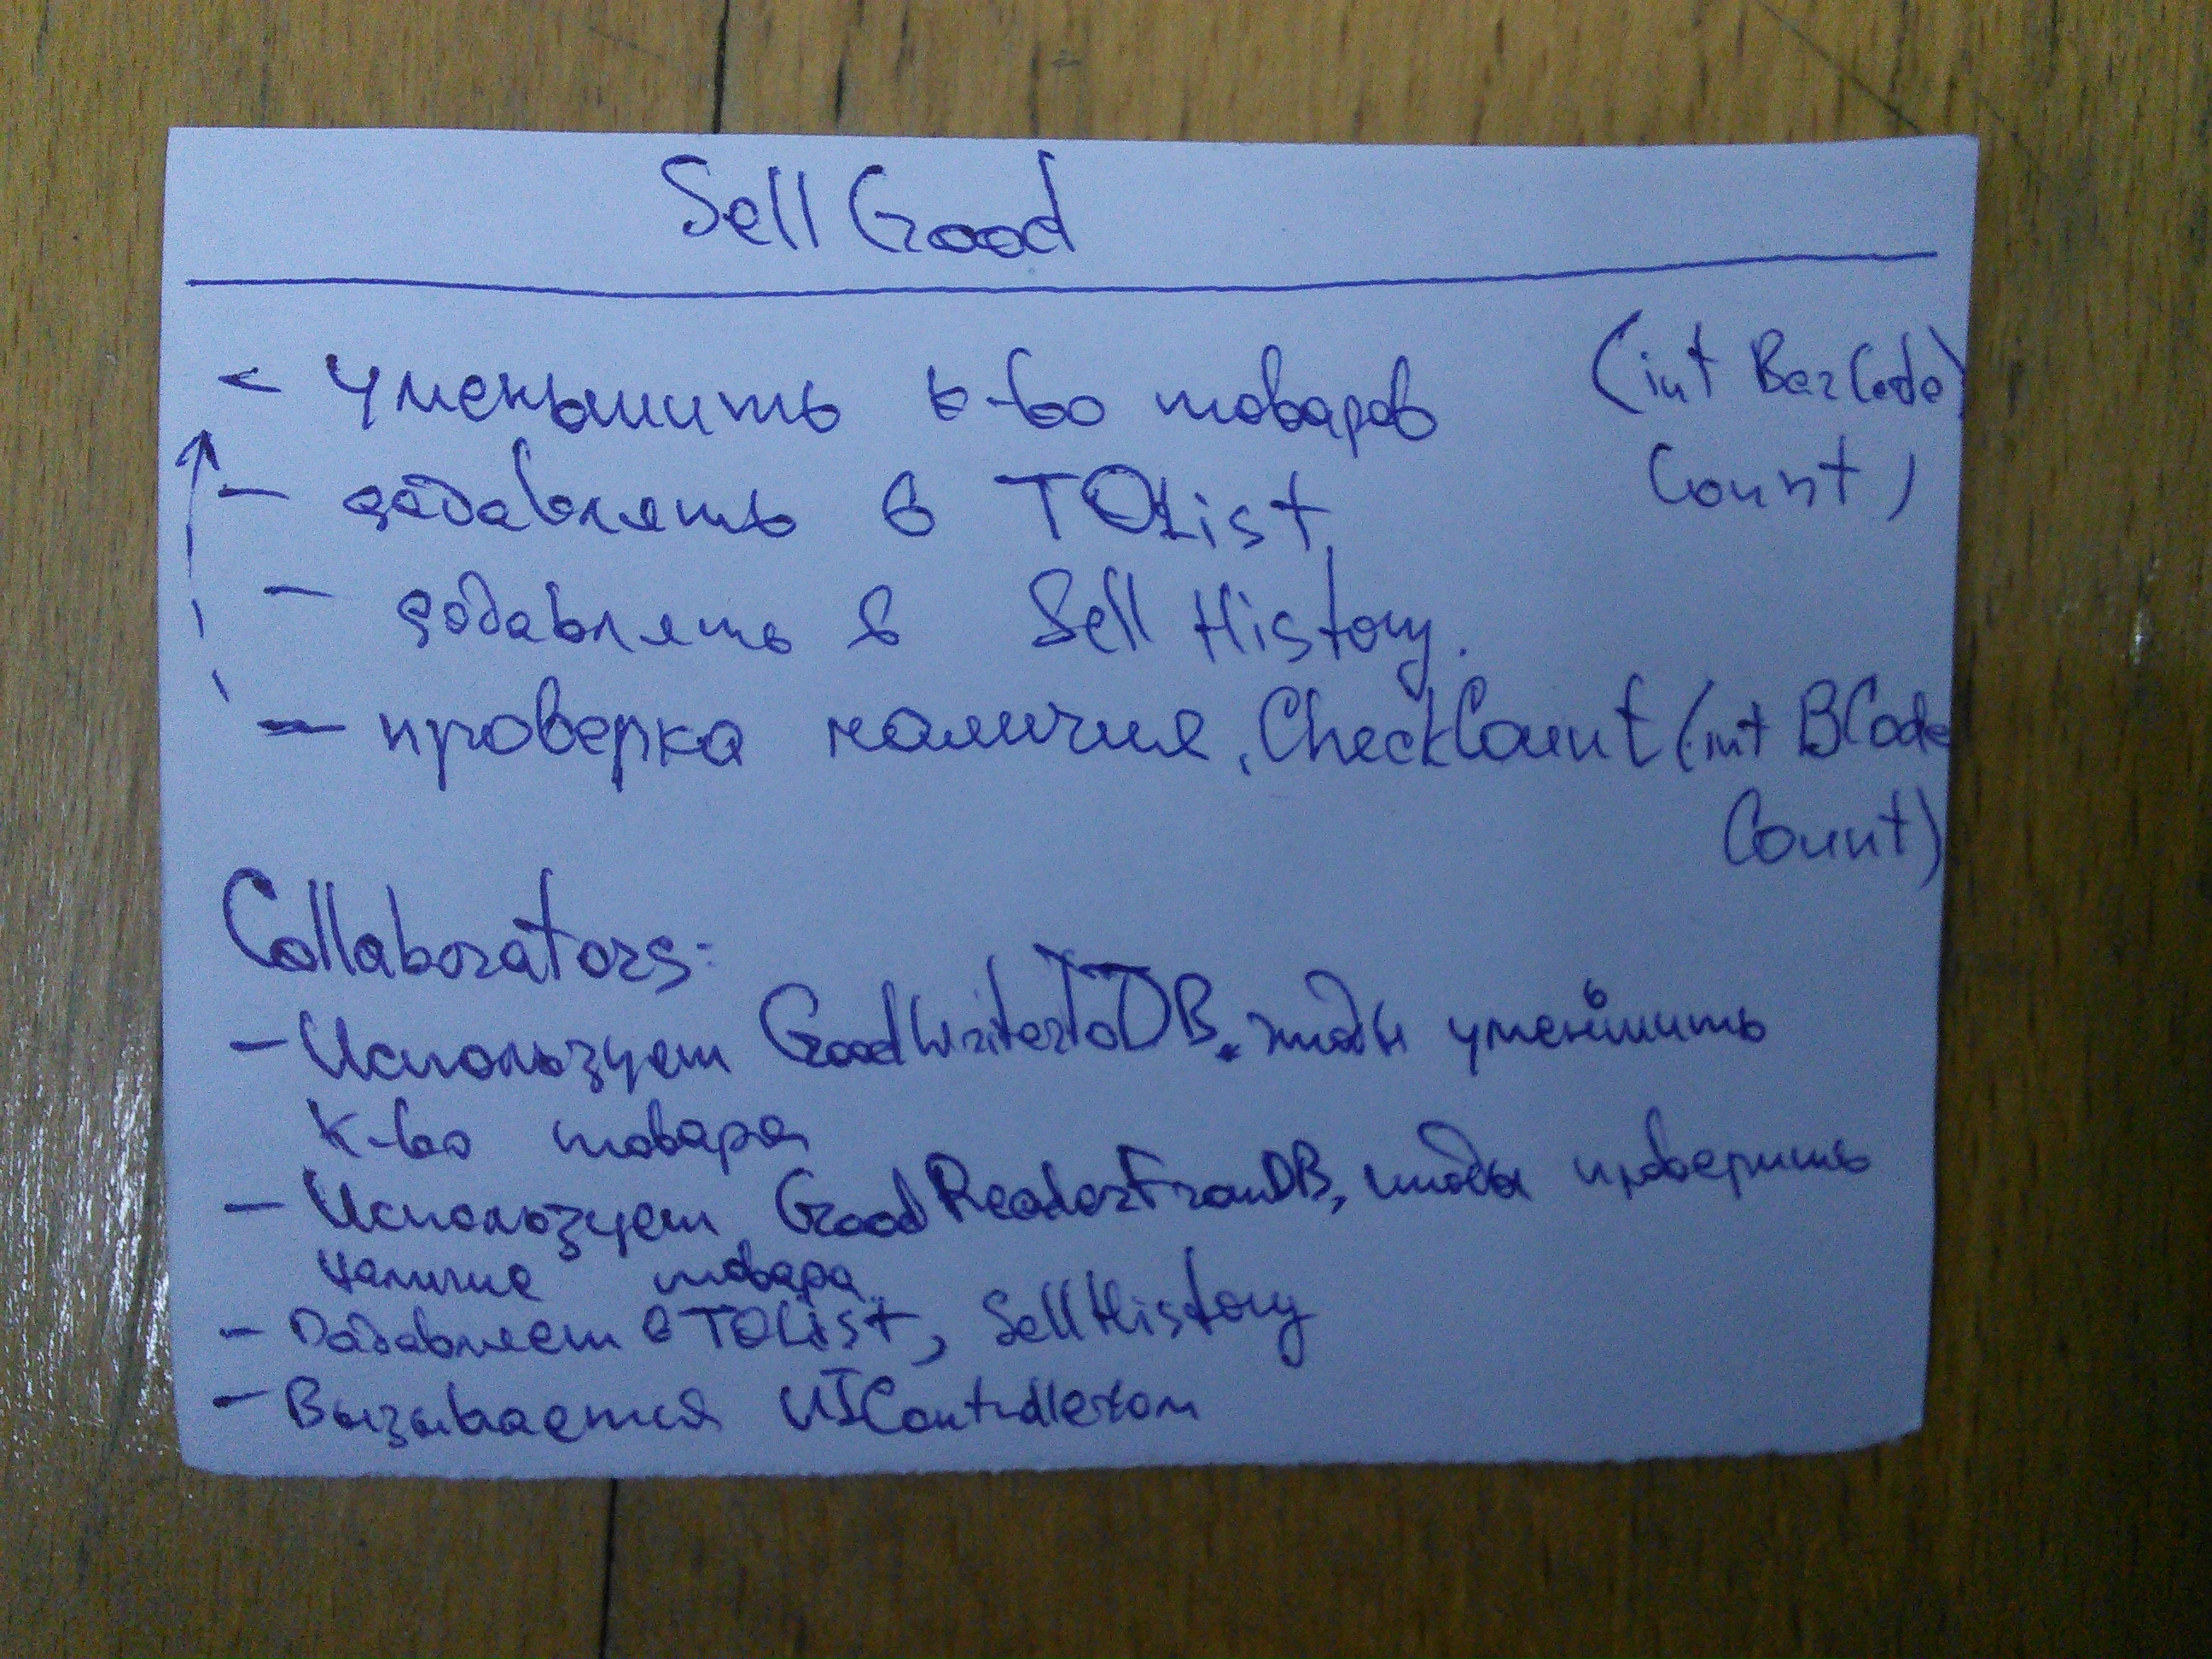 Sell Good
- Уменьшить к-во товаров (int BarCode,
Count)
- добавлять в TOList
- добавлять в Sell History.
- проверка наличия, CheckCount (int BCode
Count)
Collaborators:
- Использует GoodWriterToDB, чтобы уменьшить
к-во товара
- Использует GoodReaderFromDB, чтобы проверить
наличие товара
- Добавляет в TOList, SellHistory
- Вызывается UIControllerом